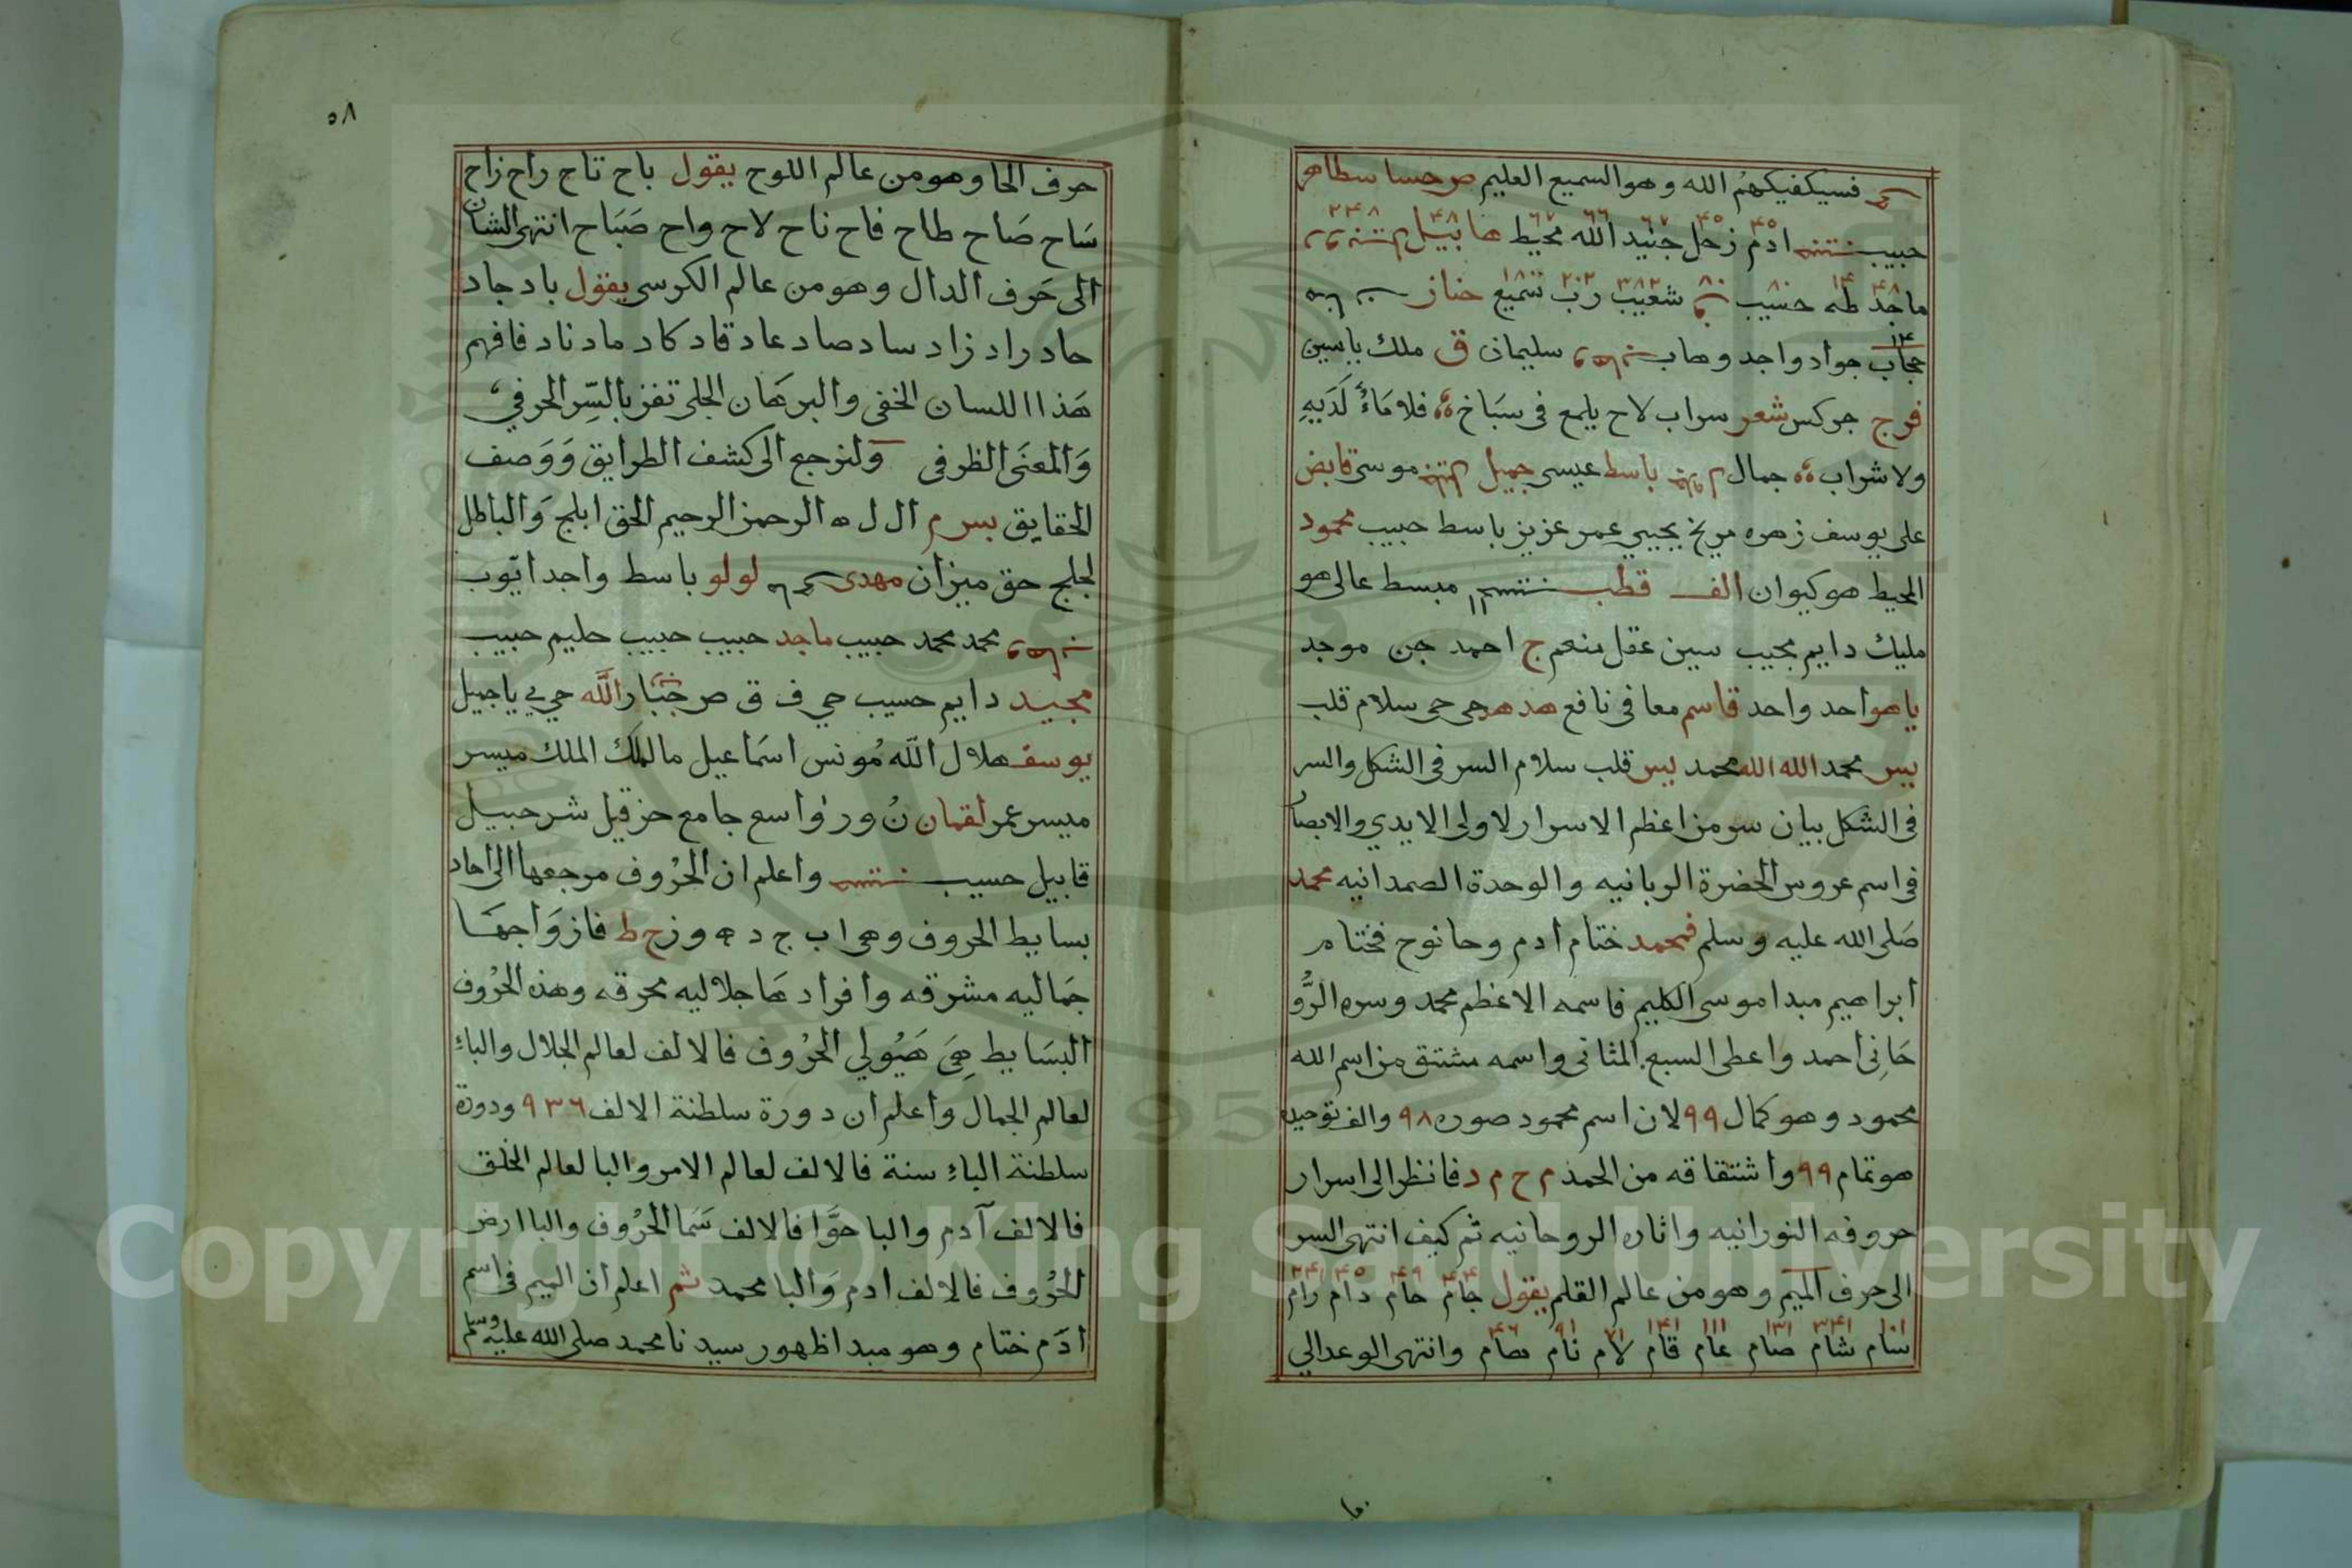 فسيكفيكهم الله وهو السميع العليم ص حسا سطاهر
٤٥ ٤٥ ٦٧ ٦٦ ٦٧ ٤٨ ٢٤٨
حبيب ادم زحل جنيد الله محيط هابيل
٤٨ ١٤ ٨٠ ٨٠ ٣٨٢ ٢٠٢ ١٨٠
ماجد طه حسيب شعيب رب سميع
١٤
حجاب جواد واجد وهاب سليمان ق ملك ياسين
فرج جركس شعر سراب لاح يلمع في سباخ فلا ماء لديه
ولا شراب جمال باسط عيسى جميل موسى قابض
على يوسف زهره مريخ يحيى عمر عزيز باسط حبيب محمود
المحيط هو كيوان الف قطب مبسط عالى هو
مليك دايم مجيب سين عقل منعم ج احمد جن موجد
يا هو احد واحد قاسم معافى نافع هدهد حى حى سلام قلب
يس محمد الله الله محمد يس قلب سلام السر فى الشكل والسر
فى الشكل بيان سر من اعظم الاسرار لاولى الايدي والابصار
فى اسم عروس الحضرة الربانيه والوحدة الصمدانيه محمد
صلى الله عليه وسلم فمحمد ختام ادم وحا نوح فختام
ابراهيم مبدا موسى الكليم فاسمه الاعظم محمد وسره الرُّو
حَانى احمد واعطى السبع المثانى واسمه مشتق من اسم الله
محمود وهو كمال ٩٩ لان اسم محمود صوره ٩٨ والف توحيده
هو تمام ٩٩ واشتقاقه من الحمد م ح م د فانظر الى اسرار
حروفه النورانيه واثاره الروحانيه ثم كيف انتهى السر
٤٤ ٤٩ ٤٥ ٢٤١
الى حرف الميم وهو من عالم القلم يقول جام حام دام رام
١٠١ ٣٤١ ١٣١ ١١١ ١٤١ ٧١ ٩١ ٤٦
سام شام صام عام قام لام نام هام وانتهى الوعد الي
٥٨
حرف الحا وهو من عالم اللوح يقول باح تاح راح زاح
سَاح صَاح طاح فاح ناح لاح واح صَبَاح انتهى الشان
الى حَرف الدال وهو من عالم الكرسى يقول باد جاد
حاد راد زاد ساد صاد عاد قاد كاد ماد ناد فافهم
هَذا اللسان الخفى والبرهَان الجلى تفز بالسِّر الحرفي
وَالمعنَى الظرفى ولنرجع الى كشف الطرايق وَوَصف
الحقايق بس م ال ل ه الرحمن الرحيم الحق ابلج وَالباطل
لجلج حق ميزان مهدى لولو باسط واجد ايّوب
محمد محمد حبيب ماجد حبيب حبيب حليم حبيب
مجيد دايم حسيب حي ف ق ص جَبّار الله حي ي يا جميل
يوسف هلال الله مُونس اسمَاعيل مالك الملك ميسر
ميسر عمر لقمان نُ و ر واسع جامع حزقيل شرحبيل
قابيل حسيب واعلم ان الحرُوف مرجعها الى احاد
بسايط الحروف وهى ا ب ج د ه و ز ح ط فازوَاجهَا
جَماليه مشرقه وافرادهَا جلاليه محرقه وهذه الحرُوف
البسَايط هِىَ هَيُولي الحرُوف فالالف لعالم الجلال والباءِ
لعالم الجمال واعلم ان دورة سلطنة الالف ٩٣٦ ودورة
سلطنة الباءِ سنة فالالف لعالم الامر والبا لعالم الخلق
فالالف آدم والبا حوَّا فالالف سَما الحرُوف والبا ارض
الحرُوف فالالف ادم وَالبا محمد ثم اعلم ان الميم فى اسم
ادَم ختام وهو مبدا ظهور سيدنا محمد صلى الله عليه وسلم
Copyright © King Saud University